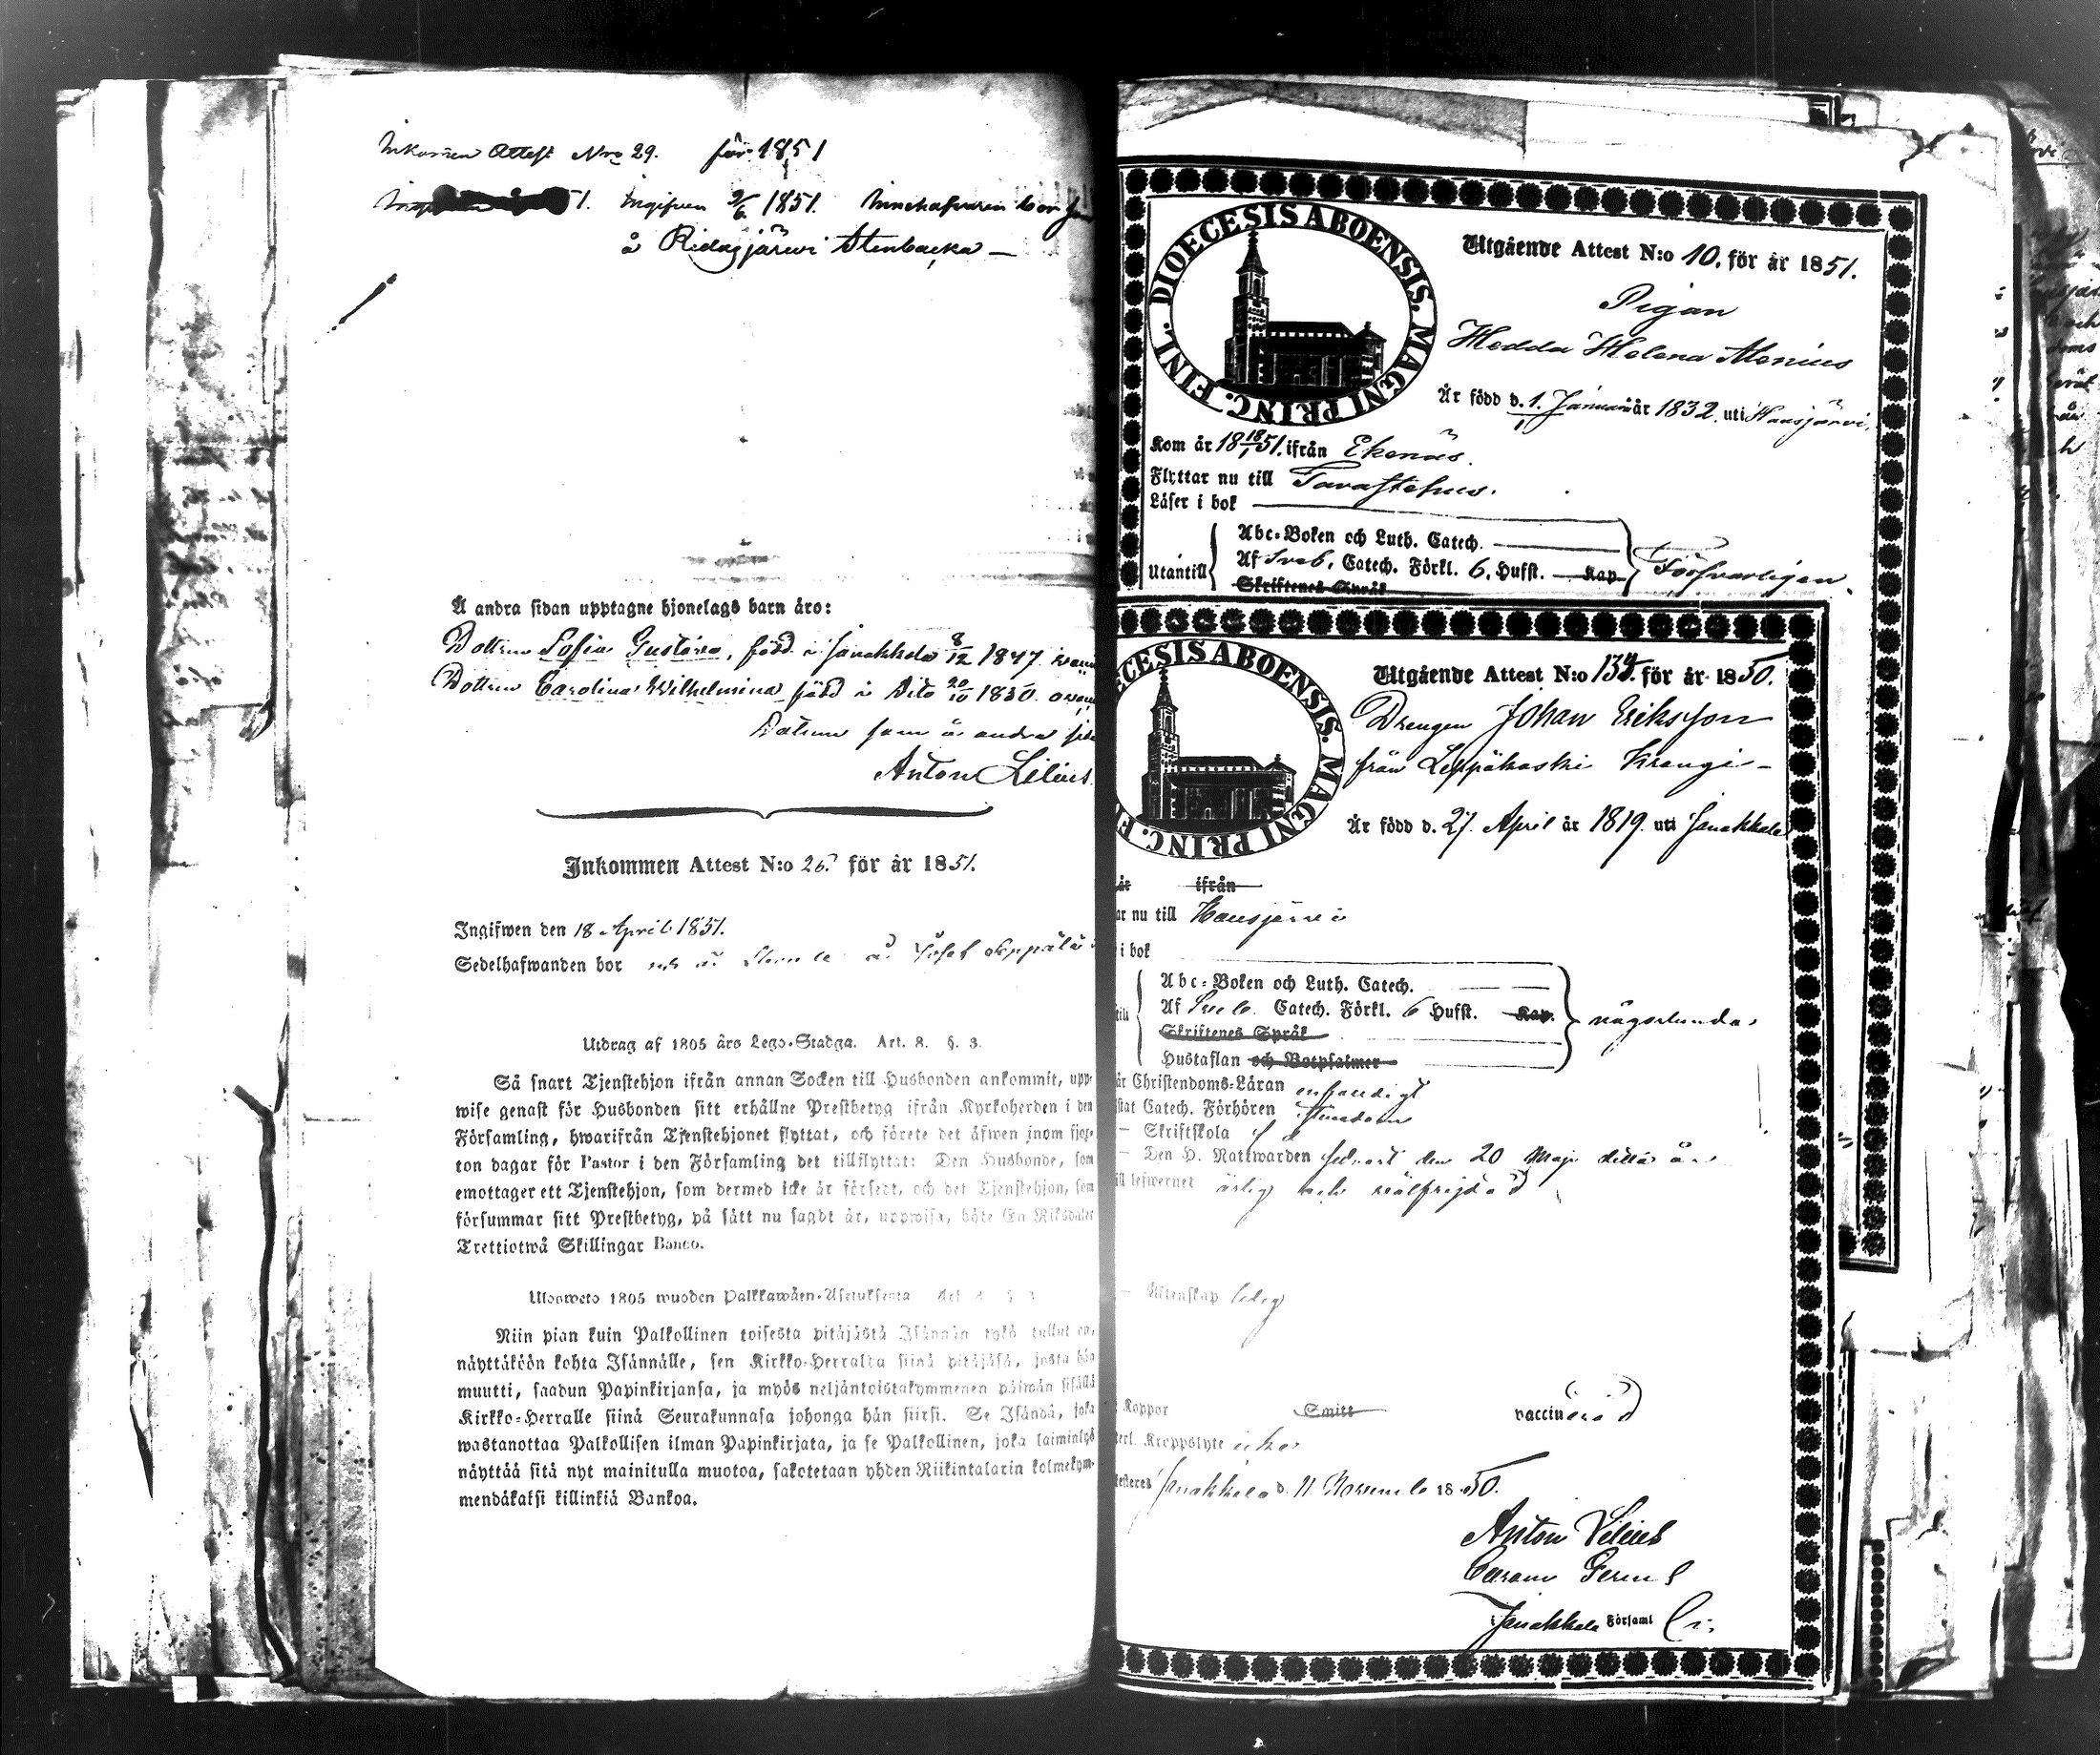 Inkommen Attest Nro 29. för 1851
51. Ingifven 2/6 1851. Innehafvaren bor
å Ridasjärwi Stenbacka —
Å andra sidan upptagne hjonelags barn äro:
Dottren Sofia Gustava, född i Janakkala 8/12 1847
Dottren Carolina Wilhelmina född i dito 20/10 1850.
Datum som å andra
Anton Lilius.
Inkommen Attest N:o 26. för år 1851.
Ingifwen den 18 April 1851.
Sedelhafwanden bor
Utdrag af 1805 års Lego-Stadga. Art. 8. §. 3.
Så snart Tjenstehjon ifrån annan Socken till Husbonden ankommit, upp-
wise genast för Husbonden sitt erhållne Prestbetyg ifrån Kyrkoherden i den
Församling, hwarifrån Tjenstehjonet flyttat, och förete det äfwen inom fjor-
ton dagar för Pastor i den Församling det tillflyttat: Den Husbonde, som
emottager ett Tjenstehjon, som dermed icke är försedt, och det Tjenstehjon, som
försummar sitt Prestbetyg, på sätt nu sagdt är, uppwisa, böte En Riksdaler
Trettiotwå Skillingar Banco.
Ulosweto 1805 wuoden Palkkawäen-Asetuksesta
Niin pian kuin Palkollinen toisesta pitäjästä Isännän tykö tullut on,
näyttäköön kohta Isännälle, sen Kirkko-Herralda siinä pitäjäsä, josta hän
muutti, saadun Papinkirjansa, ja myös neljäntoistakymmenen päiwän sisällä
Kirkko-Herralle siinä Seurakunnasa johonga hän siirsi. Se Isändä, joka
wastanottaa Palkollisen ilman Papinkirjata, ja se Palkollinen, joka laiminlyö
näyttää sitä nyt mainitulla muotoa, sakotetaan yhden Riikintalarin kolmekym-
mendäkaksi killinkiä Bankoa.
DIOECESIS ABOENSIS. MAGNI PRINC. FINL.
Utgående Attest N:o 10. för år 1851.
Pigan
Hedda Helena Alenius
Är född d. 1. Januari år 1832. uti Hausjärvi.
Kom år 18 18/1 51. ifrån Ekenäs.
Flyttar nu till Tavastehus.
Läser i bok
Utantill
Abc-Boken och Luth. Catech.
Af Sveb. Catech. Förkl. 6. Hufst. Kap.
Skriftenes Språk
Försvarligen.
ECESIS ABOENSIS. MAGNI PRINC. F
Utgående Attest N:o 134. för år 1850.
Drengen Johan Eriksson
från Leppäkoski
Är född d. 27. April år 1819. uti Janakkala
år ifrån
ar nu till Hausjärvi
i bok
Abc-Boken och Luth. Catech.
Af Sveb. Catech. Förkl. 6 Hufst. Kap.
Skriftenes Språk
Hustaflan och Botpsalmer
någorlunda
är Christendoms-Läran enfaldigt
stat Catech. Förhören stundom
— Skriftskola
— Den H. Nattwarden sednast den 20 Maji detta år
till lefwernet ärlig och wälfrejdad
— Äktenskap ledig
Koppor Smitt vaccinerad
Kroppslyte icke
Janakkala d. 11 Novemb. 1850.
Anton Lilius
Janakkala Församl